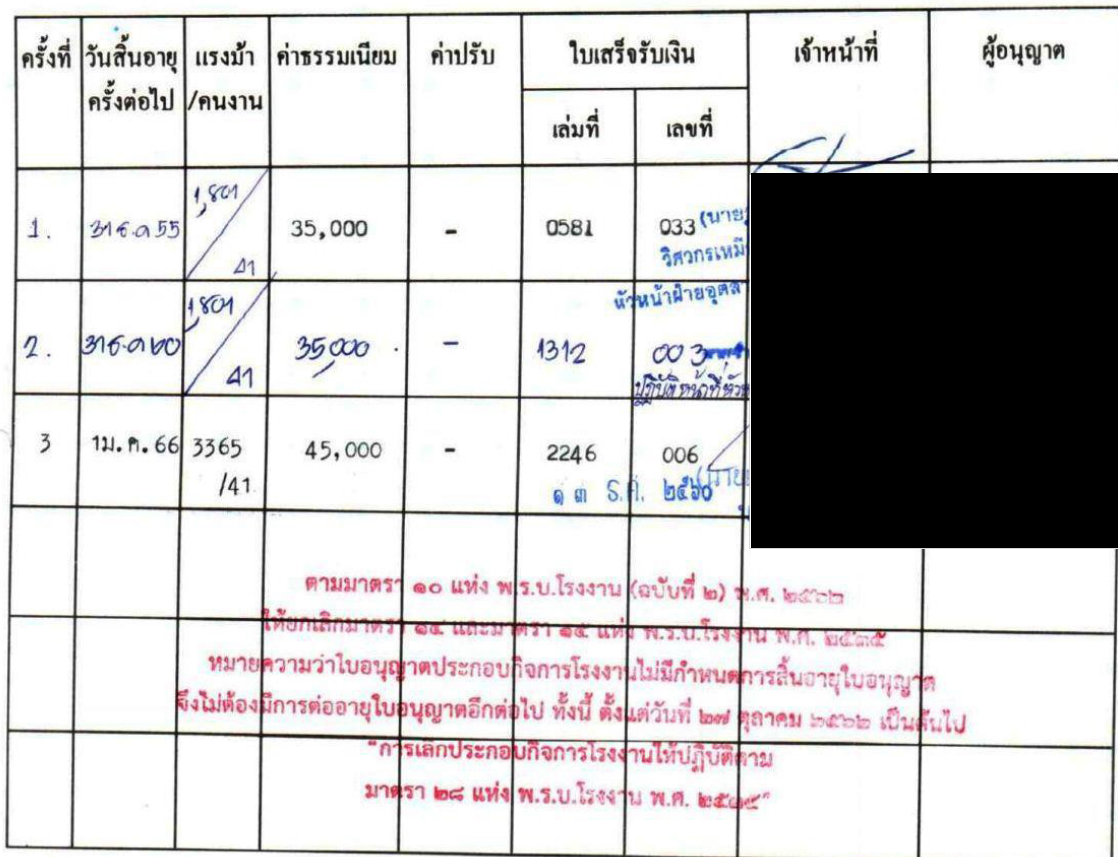 ครั้งที่ วันสิ้นอายุ แรงม้า ค่าธรรมเนียม ค่าปรับ ใบเสร็จรับเงิน เจ้าหน้าที่ ผู้อนุญาต
ครั้งต่อไป /คนงาน
เล่มที่ เลขที่
1. 31 ธ.ค 55 1,801 / 41 35,000 - 0581 033
(นาย
วิศวกรเหมือ
หัวหน้าฝ่ายอุตสา
2. 31 ธ.ค ๖๐ 1,801 / 41 35,000 - 1312 003
ปฏิบัติหน้าที่หัวห
3 1ม.ค.66 3365 45,000 - 2246 006
/41
๑๓ ธ.ค. ๒๕๖๐ (นาย
ตามมาตรา ๑๐ แห่ง พ.ร.บ.โรงงาน (ฉบับที่ ๒) พ.ศ. ๒๕๖๒
ให้ยกเลิกมาตรา ๑๔ และมาตรา ๑๕ แห่ง พ.ร.บ.โรงงาน พ.ศ. ๒๕๓๕
หมายความว่าใบอนุญาตประกอบกิจการโรงงานไม่มีกำหนดการสิ้นอายุใบอนุญาต
จึงไม่ต้องมีการต่ออายุใบอนุญาตอีกต่อไป ทั้งนี้ ตั้งแต่วันที่ ๒๗ ตุลาคม ๒๕๖๒ เป็นต้นไป
"การเลิกประกอบกิจการโรงงานให้ปฏิบัติตาม
มาตรา ๒๘ แห่ง พ.ร.บ.โรงงาน พ.ศ. ๒๕๓๕"